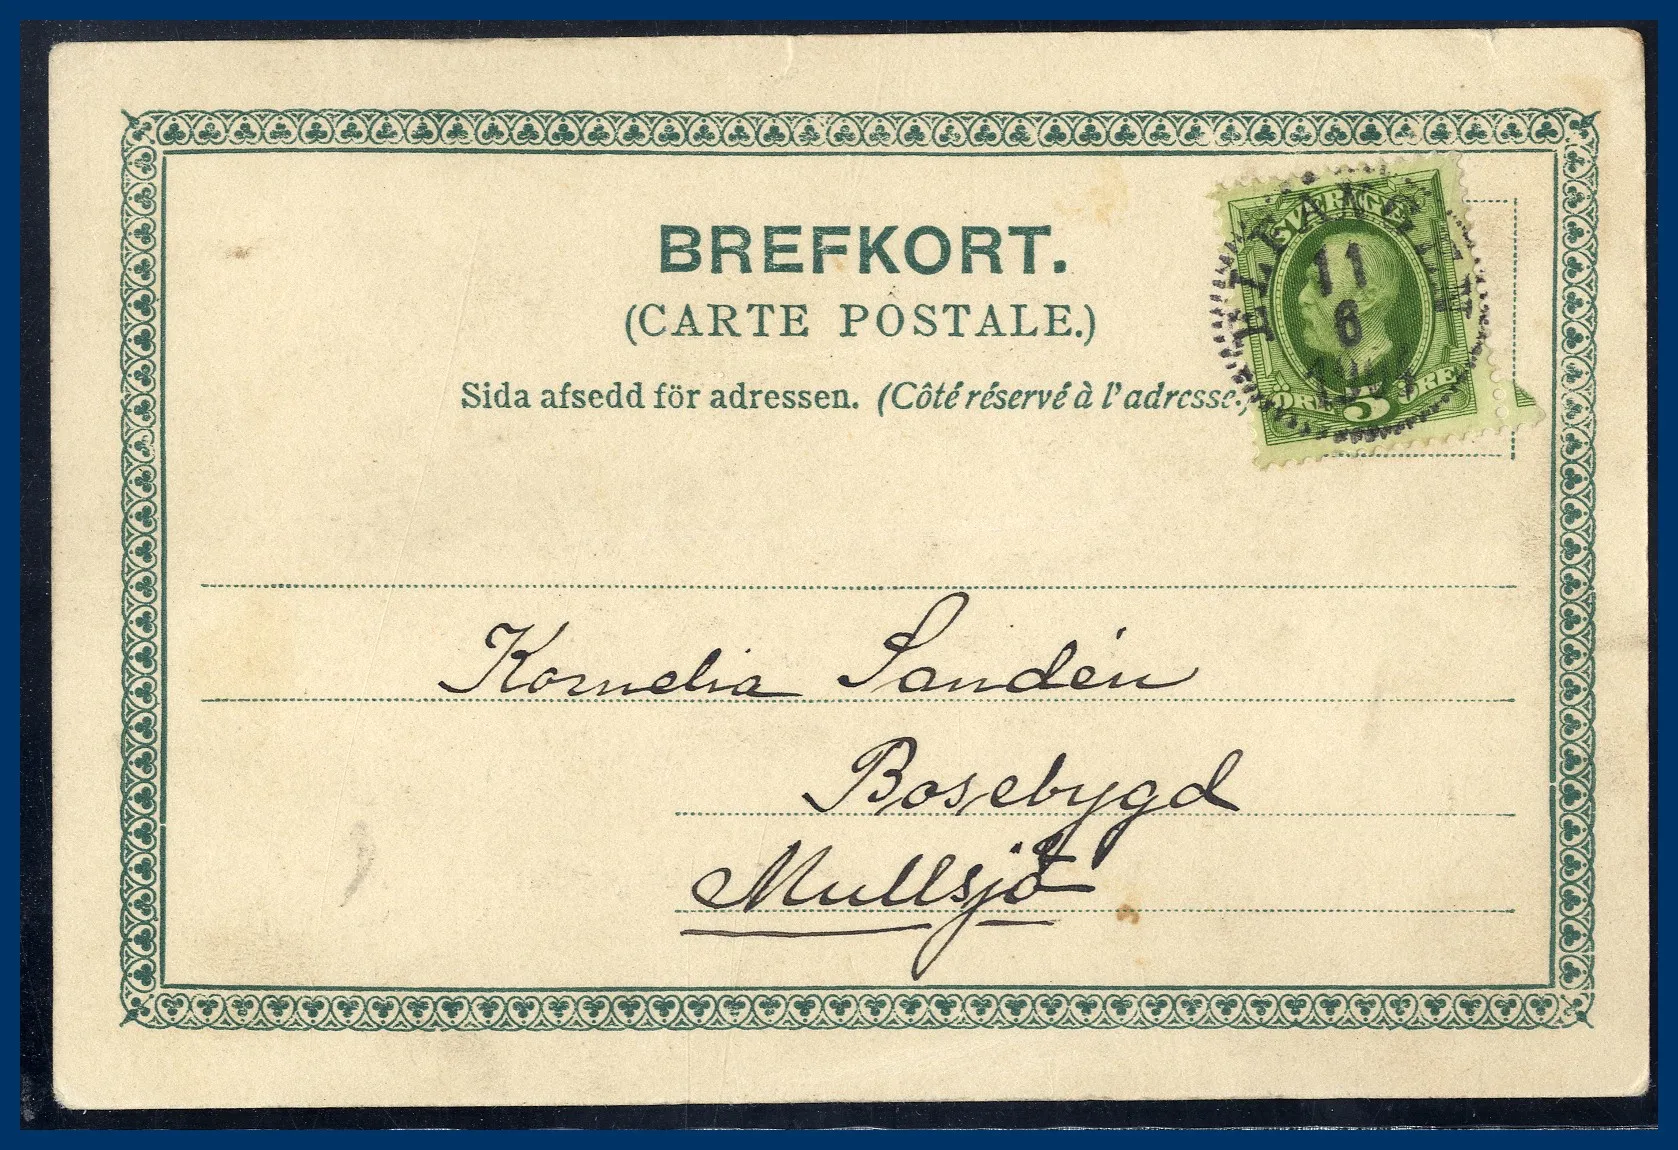 BREFKORT.
(CARTE POSTALE.)
Sida afsedd för adressen. (Côté réservé à l'adresse.)
SVERIGE
11
6
ÖRE 5 ÖRE
Kornelia Sandén
Bosebygd
Mullsjö